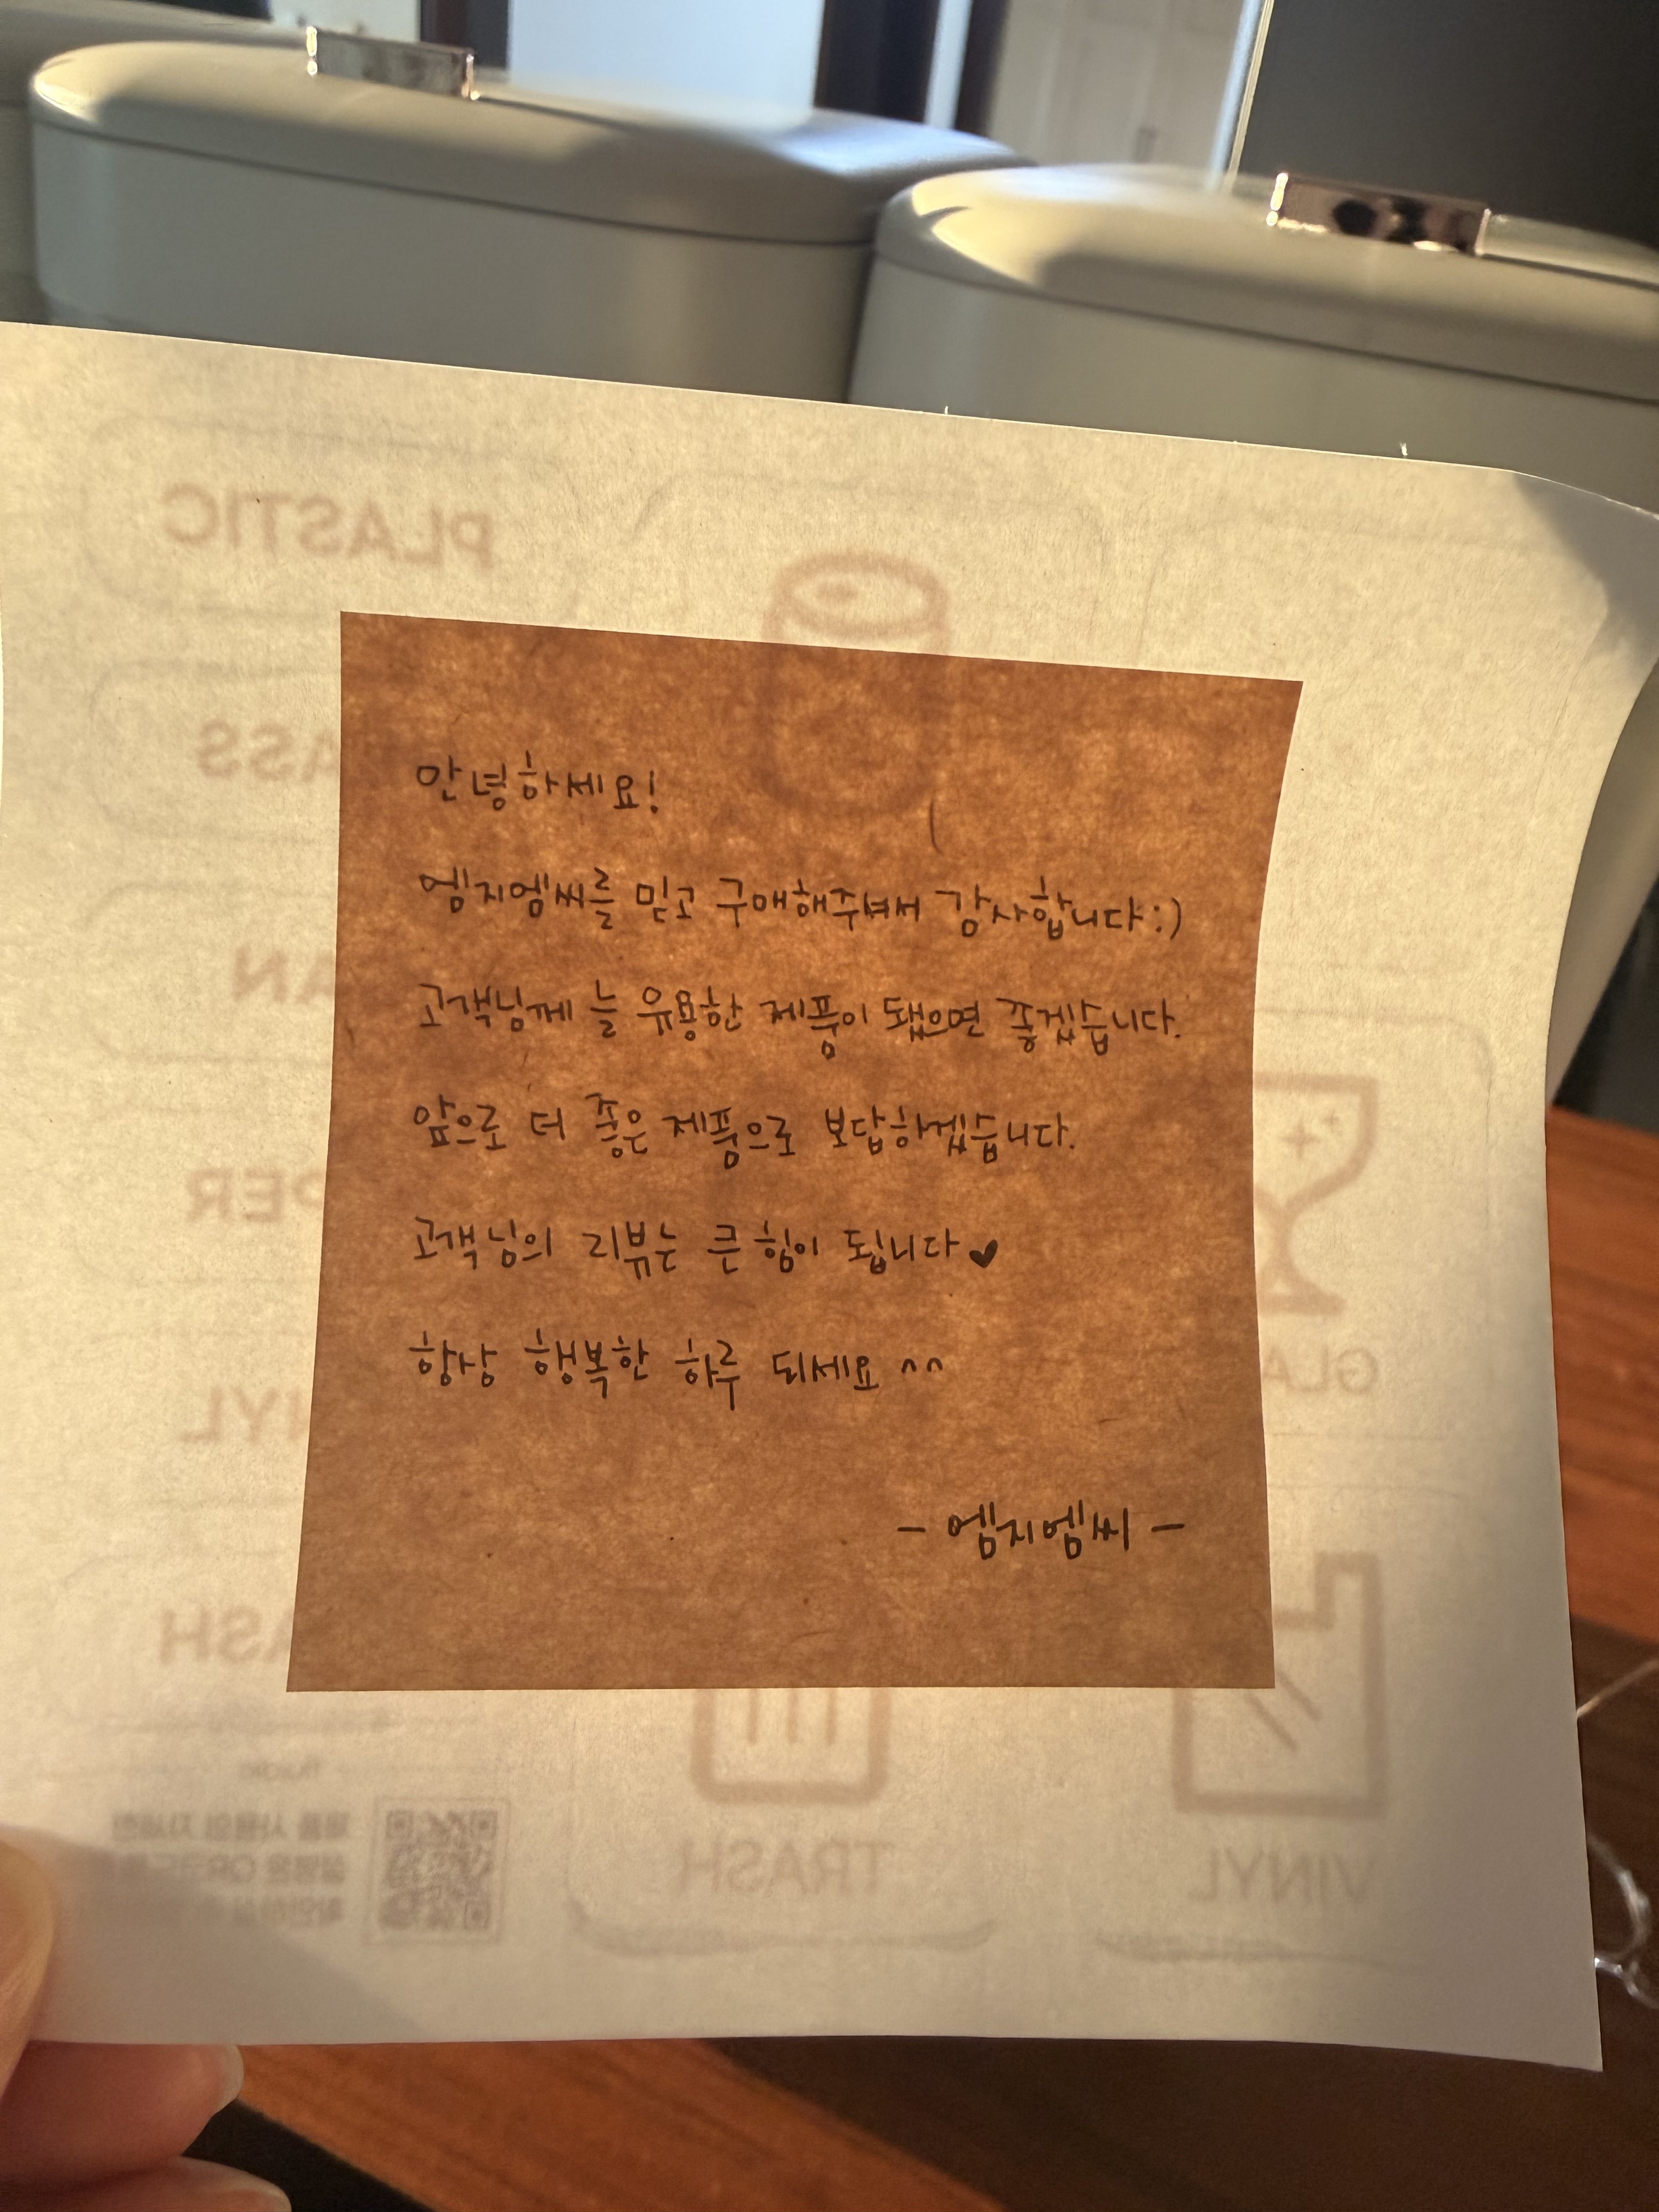 안녕하세요!
엠지엠씨를 믿고 구매해주셔서 감사합니다:)
고객님께 늘 유용한 제품이 됐으면 좋겠습니다.
앞으로 더 좋은 제품으로 보답하겠습니다.
고객님의 리뷰는 큰 힘이 됩니다♥
항상 행복한 하루 되세요 ^^
- 엠지엠씨 -
PLASTIC
ASS
AN
PER
GLA
NYL
ASH
TRASH
VINYL